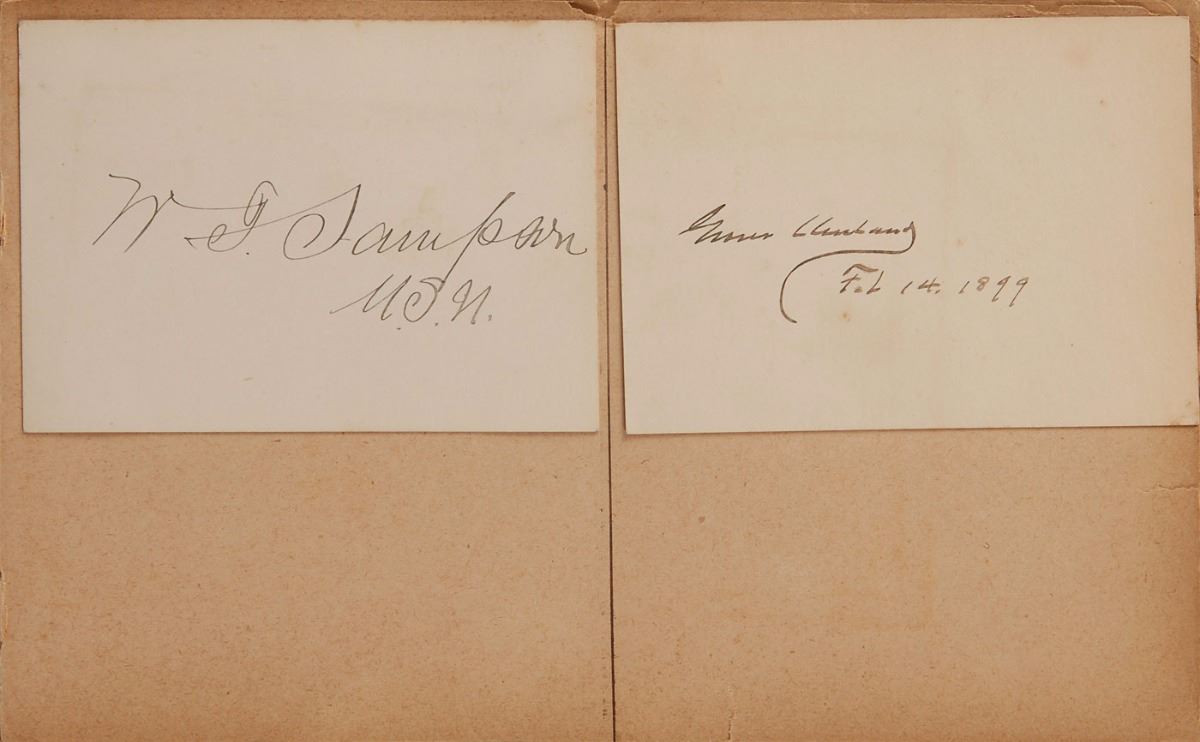 W. T. Sampson
U.S.N.
Grover Cleveland
Feb 14. 1899